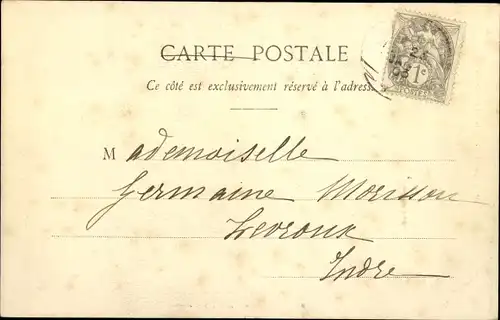 CARTE POSTALE
Ce côté est exclusivement réservé à l'adresse
1c
Mademoiselle
Germaine Morisson
Levroux
Indre